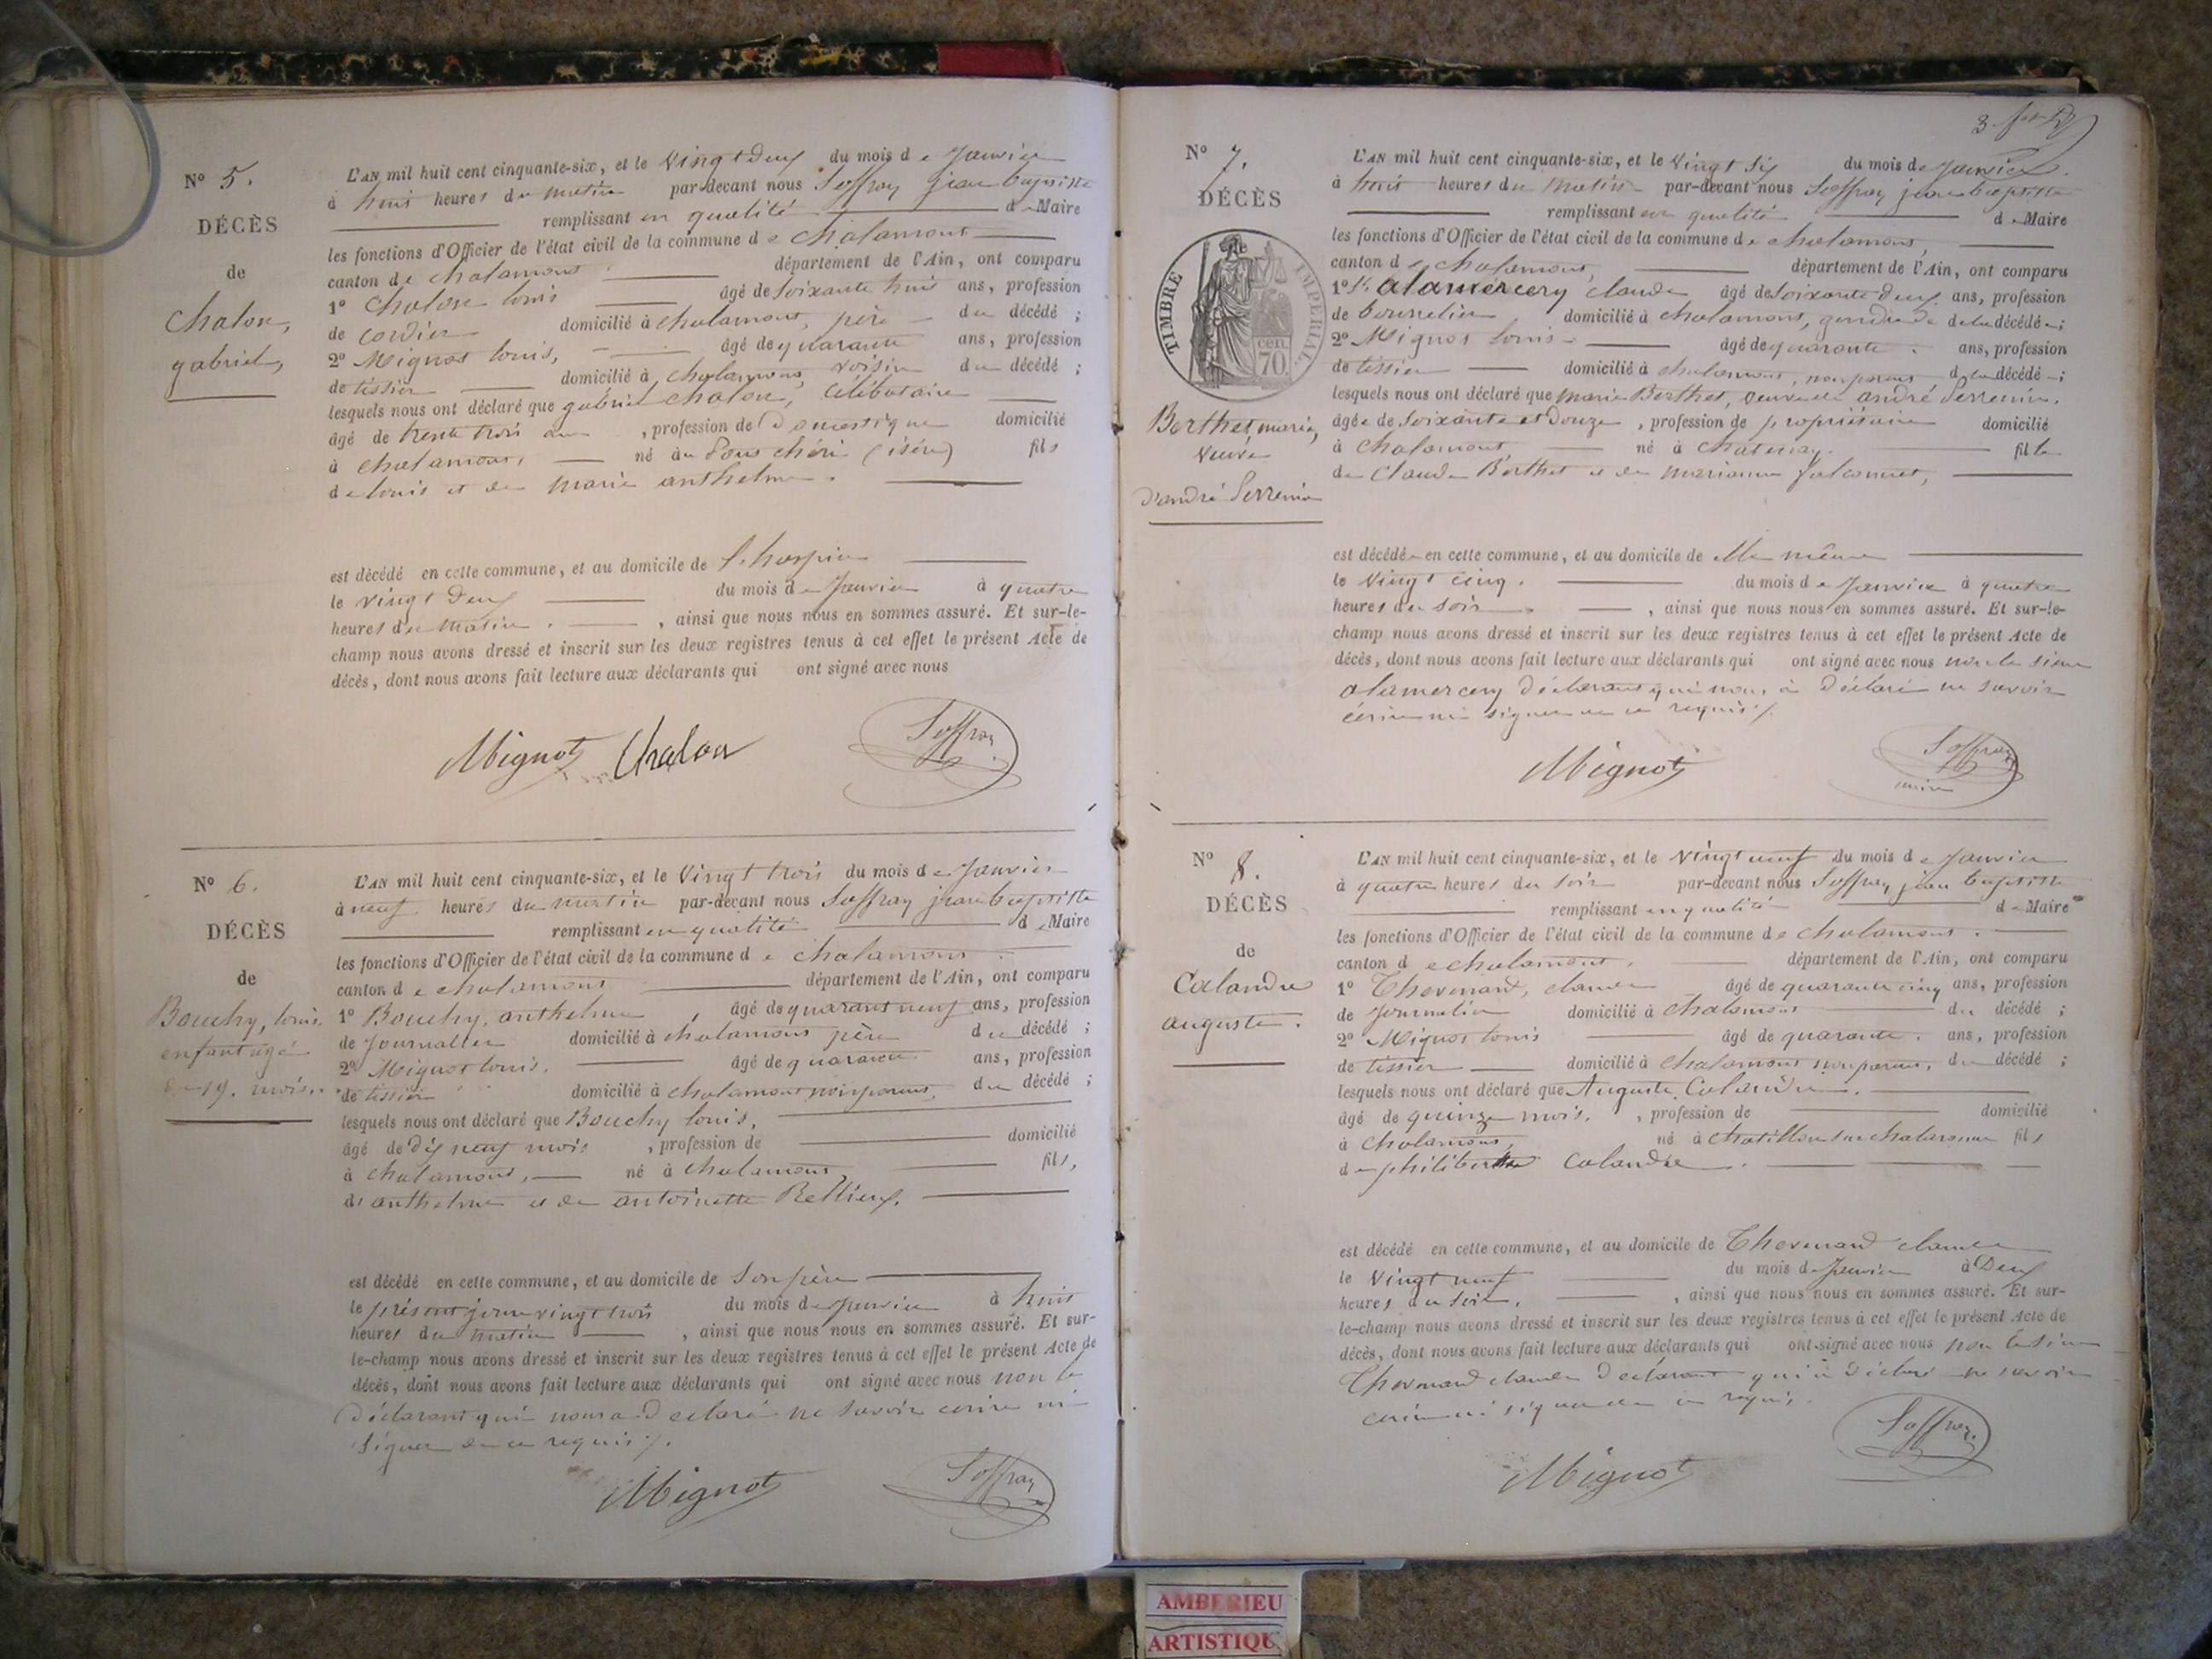 Nº 5.
DÉCÈS
de
Chalon,
gabriel,
L'AN mil huit cent cinquante-six, et le Vingt Deux du mois de Janvier
à huit heures du matin par-devant nous Soffray jean baptiste
remplissant en qualité de Maire
les fonctions d'Officier de l'état civil de la commune de Chalamont
canton de chalamont département de l'Ain, ont comparu
1º Chalon louis âgé de Soixante huit ans, profession
de cordier domicilié à chalamont, père du décédé ;
2º Mignot louis, âgé de quarante ans, profession
de tissier domicilié à chalamont, voisin du décédé ;
lesquels nous ont déclaré que gabriel chalon, célibataire
âgé de trente trois ans, profession de Domestique domicilié
à chalamont, né au (isère) fils
de louis et de marie anthelme.
est décédé en cette commune, et au domicile de l'hospice
le vingt Deux du mois de Janvier à quatre
heures du matin, ainsi que nous nous en sommes assuré. Et sur-le-
champ nous avons dressé et inscrit sur les deux registres tenus à cet effet le présent Acte de
décès, dont nous avons fait lecture aux déclarants qui ont signé avec nous
Mignot Chalon Soffray
Nº 6.
DÉCÈS
de
Bouchy, louis.
enfant agé
de 19. mois.
L'AN mil huit cent cinquante-six, et le Vingt trois du mois de Janvier
à neuf heures du matin par-devant nous Soffray jean baptiste
remplissant en qualité de Maire
les fonctions d'Officier de l'état civil de la commune de chalamont
canton de chalamont département de l'Ain, ont comparu
1º Bouchy, anthelme, âgé de quarant neuf ans, profession
de Journalier domicilié à chalamont père du décédé ;
2º Mignot louis. âgé de quarante ans, profession
de tissier domicilié à chalamont non parent, du décédé ;
lesquels nous ont déclaré que Bouchy louis,
âgé de dix neuf mois, profession de domicilié
à chalamont, né à chalamont fils,
de anthelme et de antoinette Rellieux.
est décédé en cette commune, et au domicile de Son père
le présent jour vingt trois du mois de Janvier à huit
heures du matin, ainsi que nous nous en sommes assuré. Et sur-
le-champ nous avons dressé et inscrit sur les deux registres tenus à cet effet le présent Acte de
décès, dont nous avons fait lecture aux déclarants qui ont signé avec nous non le
Déclarant qui nous a Declaré ne Savoir écrire ni
Signer de ce requis ./.
Mignot Soffray
Nº 7.
DÉCÈS
TIMBRE IMPÉRIAL
cen. 70
Berthet marie,
Veuve
d'andré Perrenin
L'AN mil huit cent cinquante-six, et le vingt six du mois de Janvier.
à huit heures du matin par-devant nous Soffray jean baptiste
remplissant en qualité de Maire
les fonctions d'Officier de l'état civil de la commune de chalamont,
canton de chalamont, département de l'Ain, ont comparu
1º alamercery claude âgé de Soixante deux ans, profession
de bourrelier domicilié à chalamont, gendre de la décédée ;
2º Mignot louis âgé de quarante. ans, profession
de tissier domicilié à chalamont, non parent de la décédée ;
lesquels nous ont déclaré que marie Berthet, veuve de andré Perrenin,
âgée de Soixante et Douze, profession de propriétaire domicilié
à chalamont né à chatenay. fille
de Claude Berthet et de marianne falconnet,
est décédée en cette commune, et au domicile de Elle même
le Vingt cinq. du mois de Janvier à quatre
heures du Soir, ainsi que nous nous en sommes assuré. Et sur-le-
champ nous avons dressé et inscrit sur les deux registres tenus à cet effet le présent Acte de
décès, dont nous avons fait lecture aux déclarants qui ont signé avec nous non le sieur
alamercery Déclarant qui nous a Déclaré ne Savoir
écrire ni signer de ce requis ./.
Mignot Soffray
maire
Nº 8.
DÉCÈS
de
Calandre
auguste.
L'AN mil huit cent cinquante-six, et le vingt neuf du mois de Janvier
à quatre heures du Soir par-devant nous Soffray jean baptiste
remplissant en qualité de Maire
les fonctions d'Officier de l'état civil de la commune de chalamont.
canton de chalamont. département de l'Ain, ont comparu
1º Thevenard, claude âgé de quarante cinq ans, profession
de Journalier domicilié à chalamont du décédé ;
2º Mignot louis âgé de quarante. ans, profession
de tissier domicilié à chalamont non parent, du décédé ;
lesquels nous ont déclaré que Auguste Calandre.
âgé de quinze mois, profession de domicilié
à chalamont, né à chatillon sur chalaronne fils
de philiberte Calandre.
est décédé en cette commune, et au domicile de Thevenard claude
le Vingt neuf du mois de Janvier à Deux
heures du Soir, ainsi que nous nous en sommes assuré. Et sur-
le-champ nous avons dressé et inscrit sur les deux registres tenus à cet effet le présent Acte de
décès, dont nous avons fait lecture aux déclarants qui ont signé avec nous non le Sieur
Thevenard claude Déclarant qui a Déclaré ne savoir
écrire ni signer de ce requis.
Mignot Soffray
AMBERIEU
ARTISTIQU